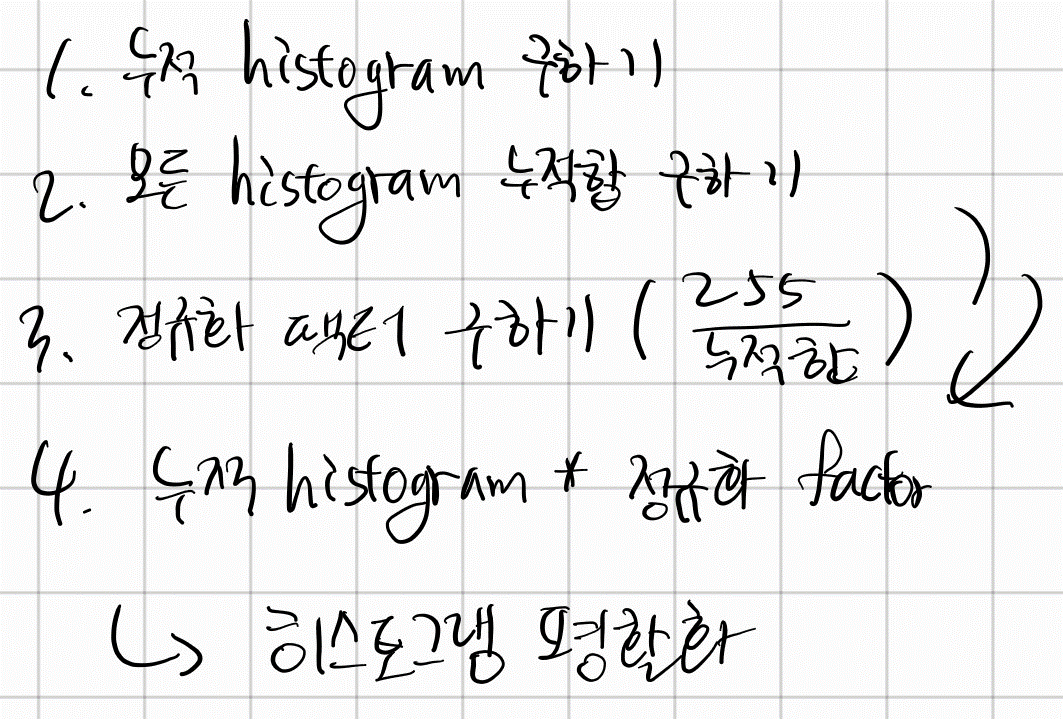 1. 누적 histogram 구하기
2. 모든 histogram 누적합 구하기
3. 정규화 팩터 구하기 (255/누적합)
4. 누적 histogram * 정규화 factor
↳ 히스토그램 평활화